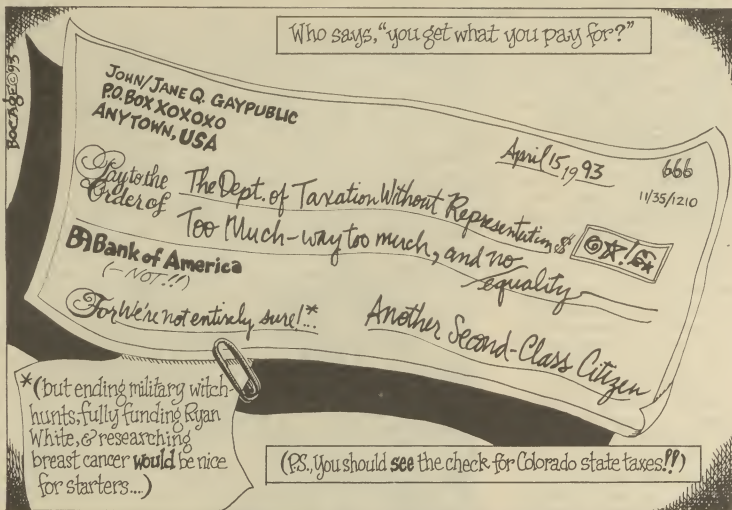 Who says, "you get what you pay for?"
BOCAGE©93
JOHN/JANE Q. GAYPUBLIC
P.O. BOX XOXOXO
ANYTOWN, USA
April 15, 1993
666
11/35/1210
Pay to the
Order of The Dept. of Taxation Without Representation $ @*!&*
Too Much-way too much, and no
equality
BA Bank of America
(-NOT!!)
For We're not entirely sure!*...
Another Second-Class Citizen
*(but ending military witch-
hunts, fully funding Ryan
White, & researching
breast cancer would be nice
for starters...)
(P.S., You should see the check for Colorado state taxes!!)